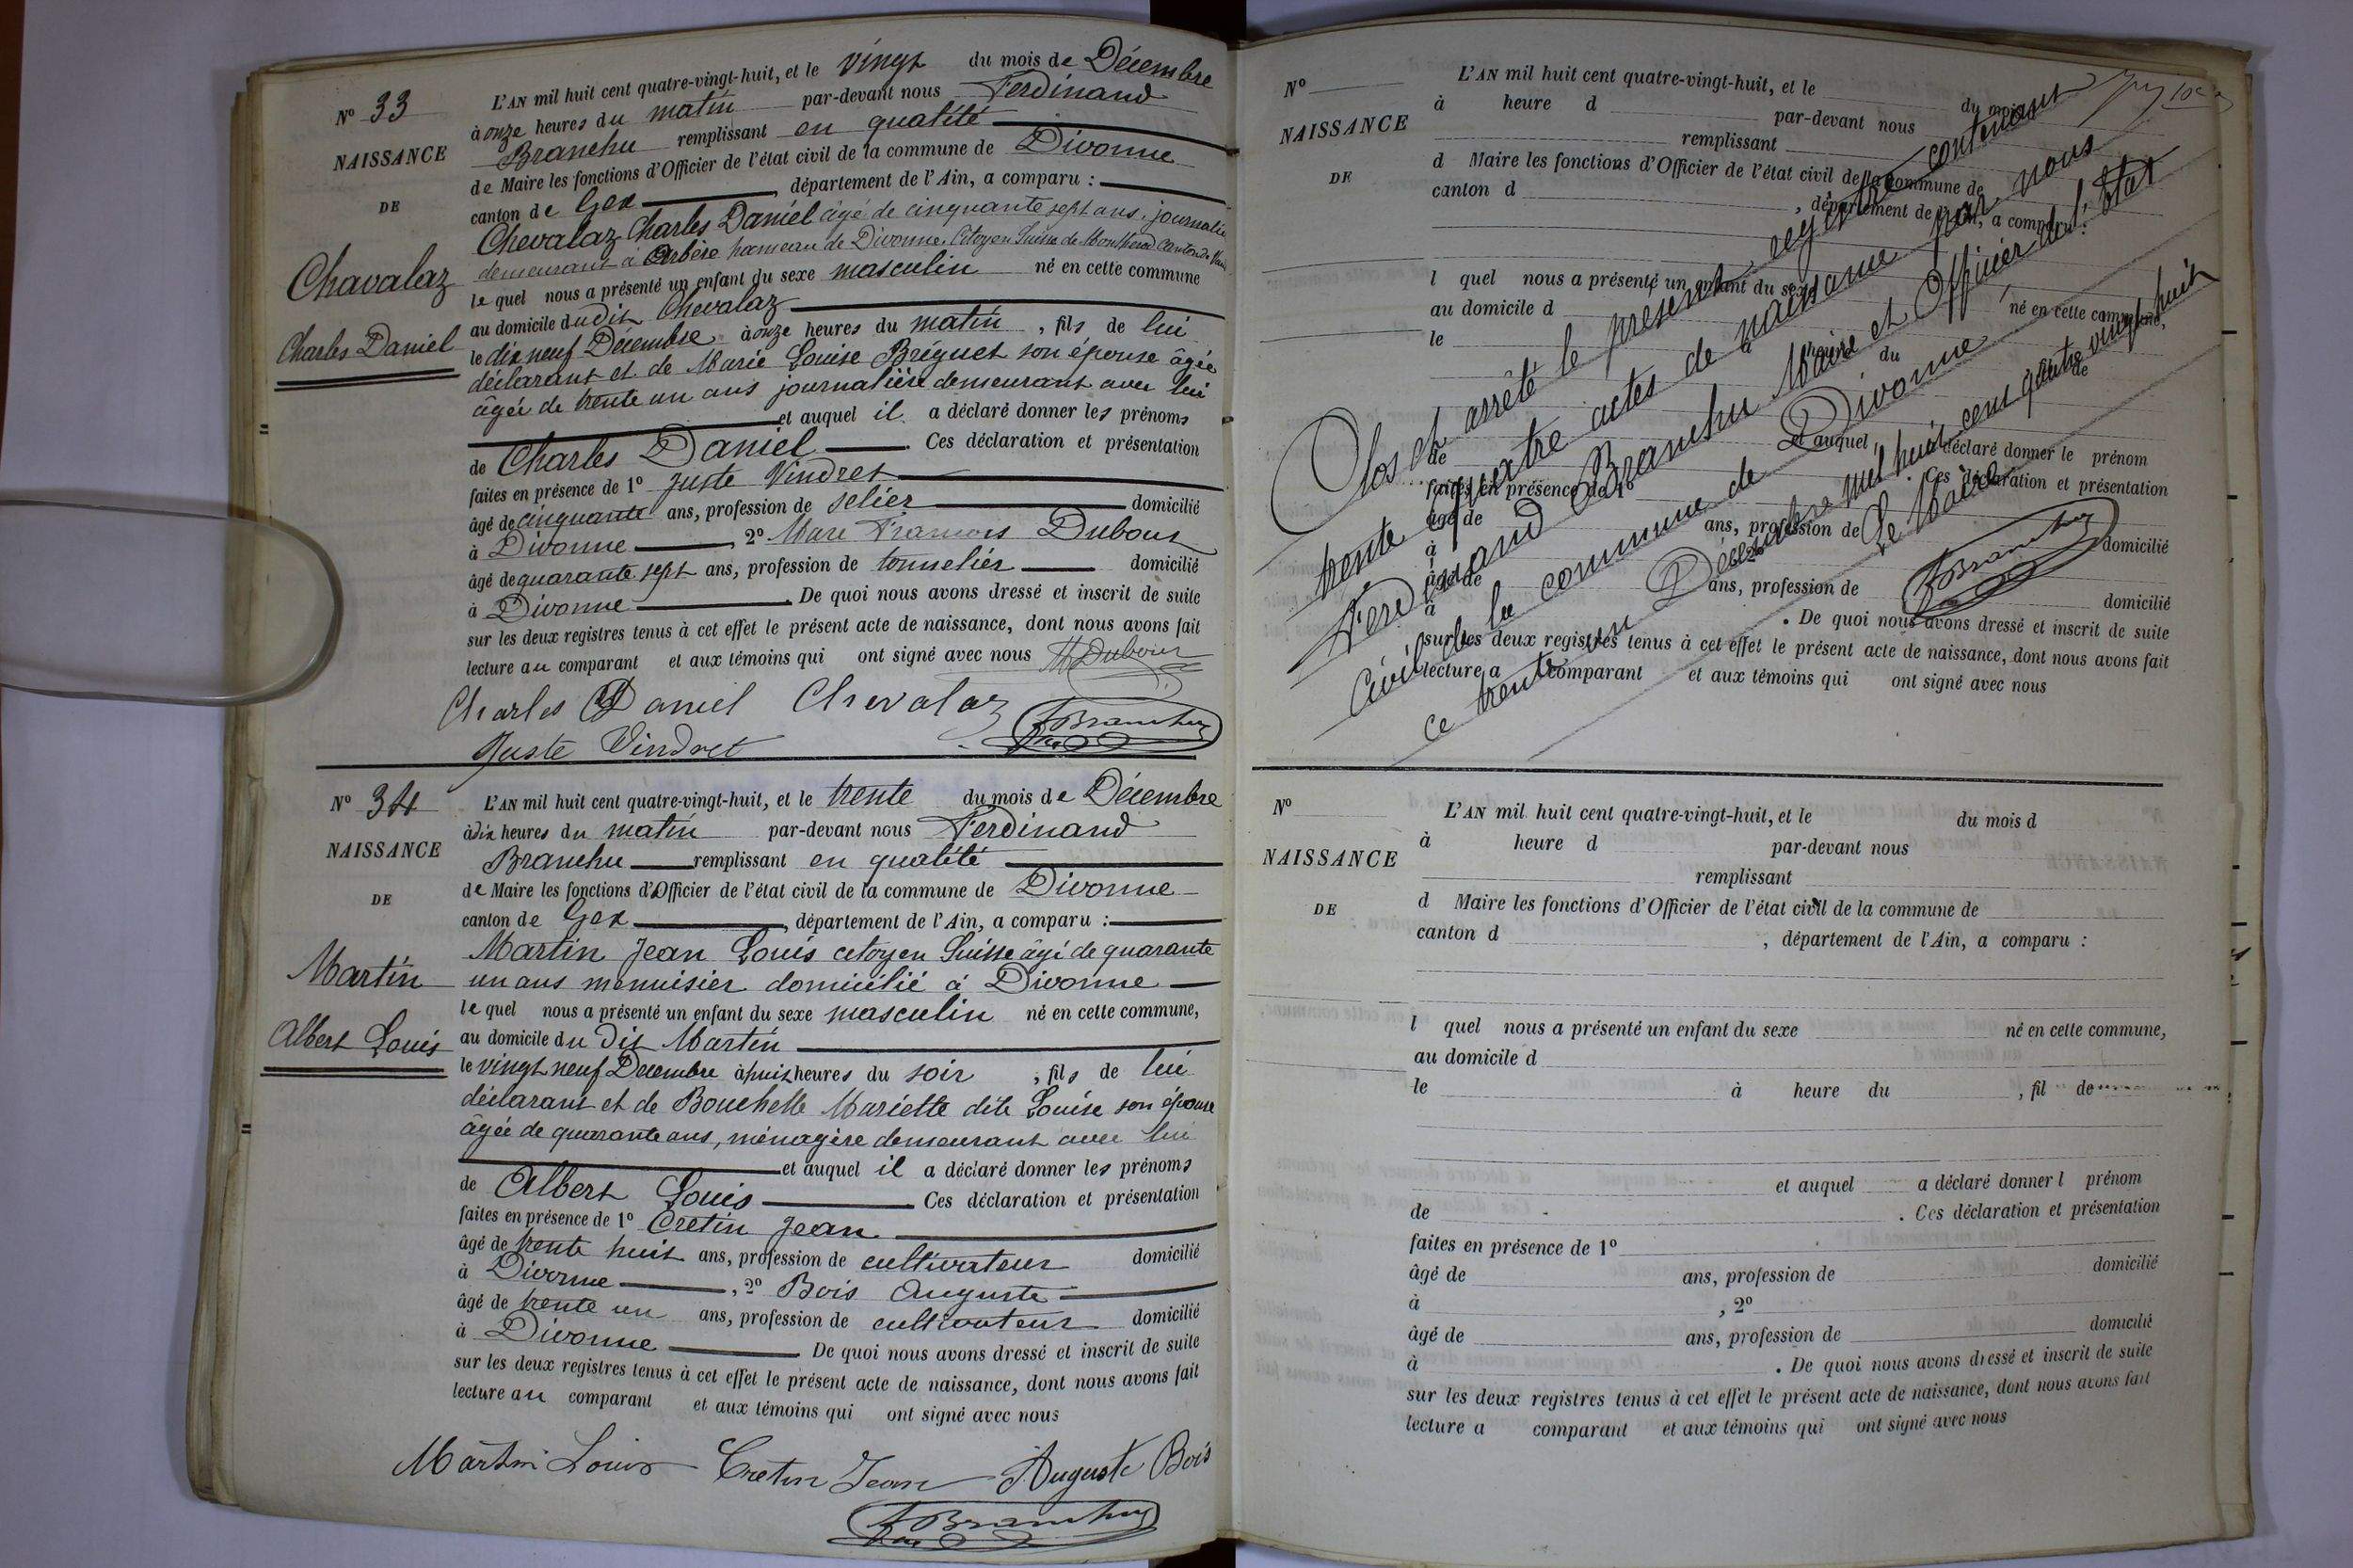 N° 33
NAISSANCE
DE
Chavalaz
Charles Daniel
L'AN mil huit cent quatre-vingt-huit, et le vingt du mois de Décembre
à onze heures du matin par-devant nous Ferdinand
Branchu remplissant en qualité
de Maire les fonctions d'Officier de l'état civil de la commune de Divonne
canton de Gex, département de l'Ain, a comparu :
Chevalaz Charles Daniel âgé de cinquante sept ans, journalier
demeurant à Arbère hameau de Divonne, Citoyen Suisse de Montherod Canton de Vaud
le quel nous a présenté un enfant du sexe masculin né en cette commune
au domicile dudit Chevalaz
le dix neuf Décembre à onze heures du matin, fils de lui
déclarant et de Marie Louise Briguet son épouse âgée
âgée de trente un ans journalière demeurant avec lui
et auquel il a déclaré donner les prénoms
de Charles Daniel. Ces déclaration et présentation
faites en présence de 1° Juste Vindret
âgé de cinquante ans, profession de selier domicilié
à Divonne, 2° Marc François Dubour
âgé de quarante sept ans, profession de tonnelier domicilié
à Divonne. De quoi nous avons dressé et inscrit de suite
sur les deux registres tenus à cet effet le présent acte de naissance, dont nous avons fait
lecture au comparant et aux témoins qui ont signé avec nous M Dubour
Charles Daniel Chevalaz
Juste Vindret
F Branchu
N° 34
NAISSANCE
DE
Martin
Albert Louis
L'AN mil huit cent quatre-vingt-huit, et le trente du mois de Décembre
à dix heures du matin par-devant nous Ferdinand
Branchu remplissant en qualité
de Maire les fonctions d'Officier de l'état civil de la commune de Divonne
canton de Gex, département de l'Ain, a comparu :
Martin Jean Louis citoyen Suisse âgé de quarante
un ans menuisier domicilié à Divonne
le quel nous a présenté un enfant du sexe masculin né en cette commune,
au domicile du dit Martin
le vingt neuf Décembre à huit heures du soir, fils de lui
déclarant et de Bouchelle Mariette dite Louise son épouse
âgée de quarante ans, ménagère demeurant avec lui
et auquel il a déclaré donner les prénoms
de Albert Louis Ces déclaration et présentation
faites en présence de 1° Cretin Jean
âgé de trente huit ans, profession de cultivateur domicilié
à Divonne, 2° Bois Auguste
âgé de trente un ans, profession de cultivateur domicilié
à Divonne De quoi nous avons dressé et inscrit de suite
sur les deux registres tenus à cet effet le présent acte de naissance, dont nous avons fait
lecture au comparant et aux témoins qui ont signé avec nous
Martin Louis Cretin Jean Auguste Bois
F Branchu
N°
NAISSANCE
DE
L'AN mil huit cent quatre-vingt-huit, et le du mois
à heure d par-devant nous
remplissant
d Maire les fonctions d'Officier de l'état civil de la commune de
canton d , département de l'Ain, a comparu :
l quel nous a présenté un enfant du sexe né en cette commune,
au domicile d
le à heure du de
et auquel déclaré donner le prénom
de . Ces déclaration et présentation
faites en présence de 1°
âgé de ans, profession de domicilié
à 2°
âgé de ans, profession de domicilié
à . De quoi nous avons dressé et inscrit de suite
sur les deux registres tenus à cet effet le présent acte de naissance, dont nous avons fait
lecture a comparant et aux témoins qui ont signé avec nous
Clos et arrêté le présent registre contenant
trente quatre actes de naissance par nous
Ferdinand Branchu Maire et Officier de l'État
Civil de la commune de Divonne
ce trente un Décembre mil huit cent quatre vingt huit
Le Maire
F Branchu
N°
NAISSANCE
DE
L'AN mil huit cent quatre-vingt-huit, et le du mois d
à heure d par-devant nous
remplissant
d Maire les fonctions d'Officier de l'état civil de la commune de
canton d , département de l'Ain, a comparu :
l quel nous a présenté un enfant du sexe né en cette commune,
au domicile d
le à heure du , fil de
et auquel a déclaré donner l prénom
de . Ces déclaration et présentation
faites en présence de 1°
âgé de ans, profession de domicilié
à , 2°
âgé de ans, profession de domicilié
à . De quoi nous avons dressé et inscrit de suite
sur les deux registres tenus à cet effet le présent acte de naissance, dont nous avons fait
lecture a comparant et aux témoins qui ont signé avec nous